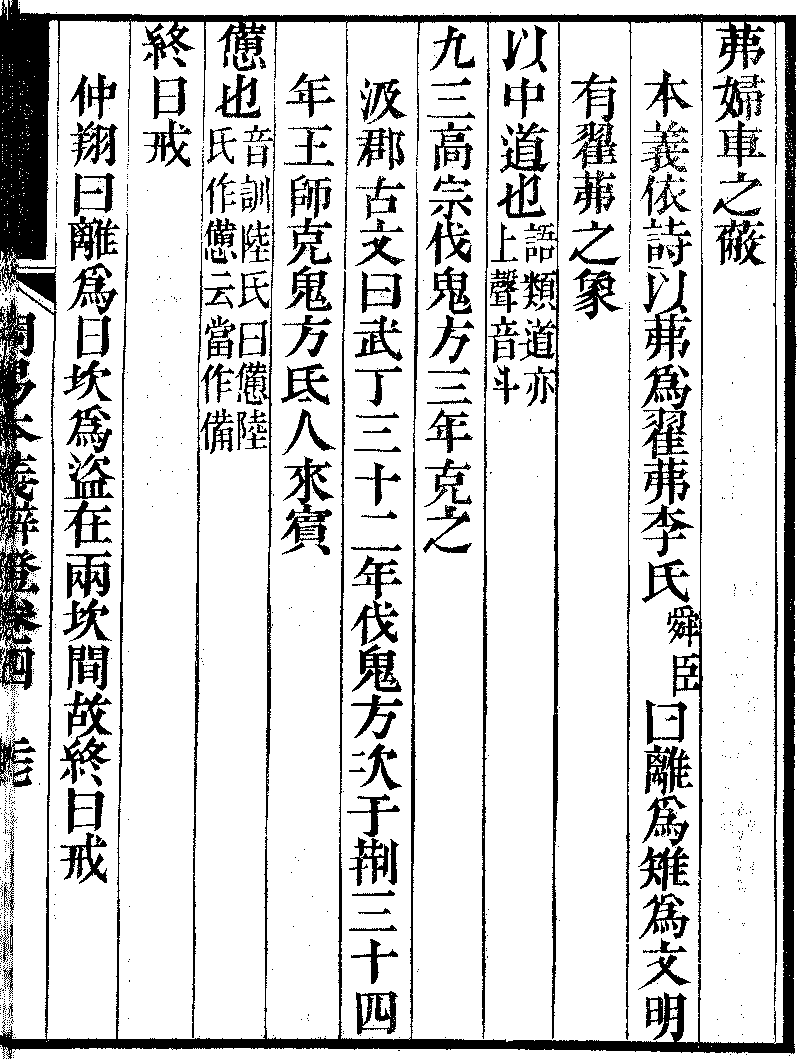 茀婦車之蔽
本義依詩以茀為翟茀李氏舜臣曰離為雉為文明
有翟茀之象
以中道也語類道亦上聲音斗
九三高宗伐鬼方三年克之
汲郡古文曰武丁三十二年伐鬼方次于荆三十四
年王師克鬼方氐人來賓
憊也音訓陸氏曰憊陸氏作憊云當作備
終日戒
仲翔曰離為日坎為盜在兩坎間故終日戒
周易本義辨證卷四